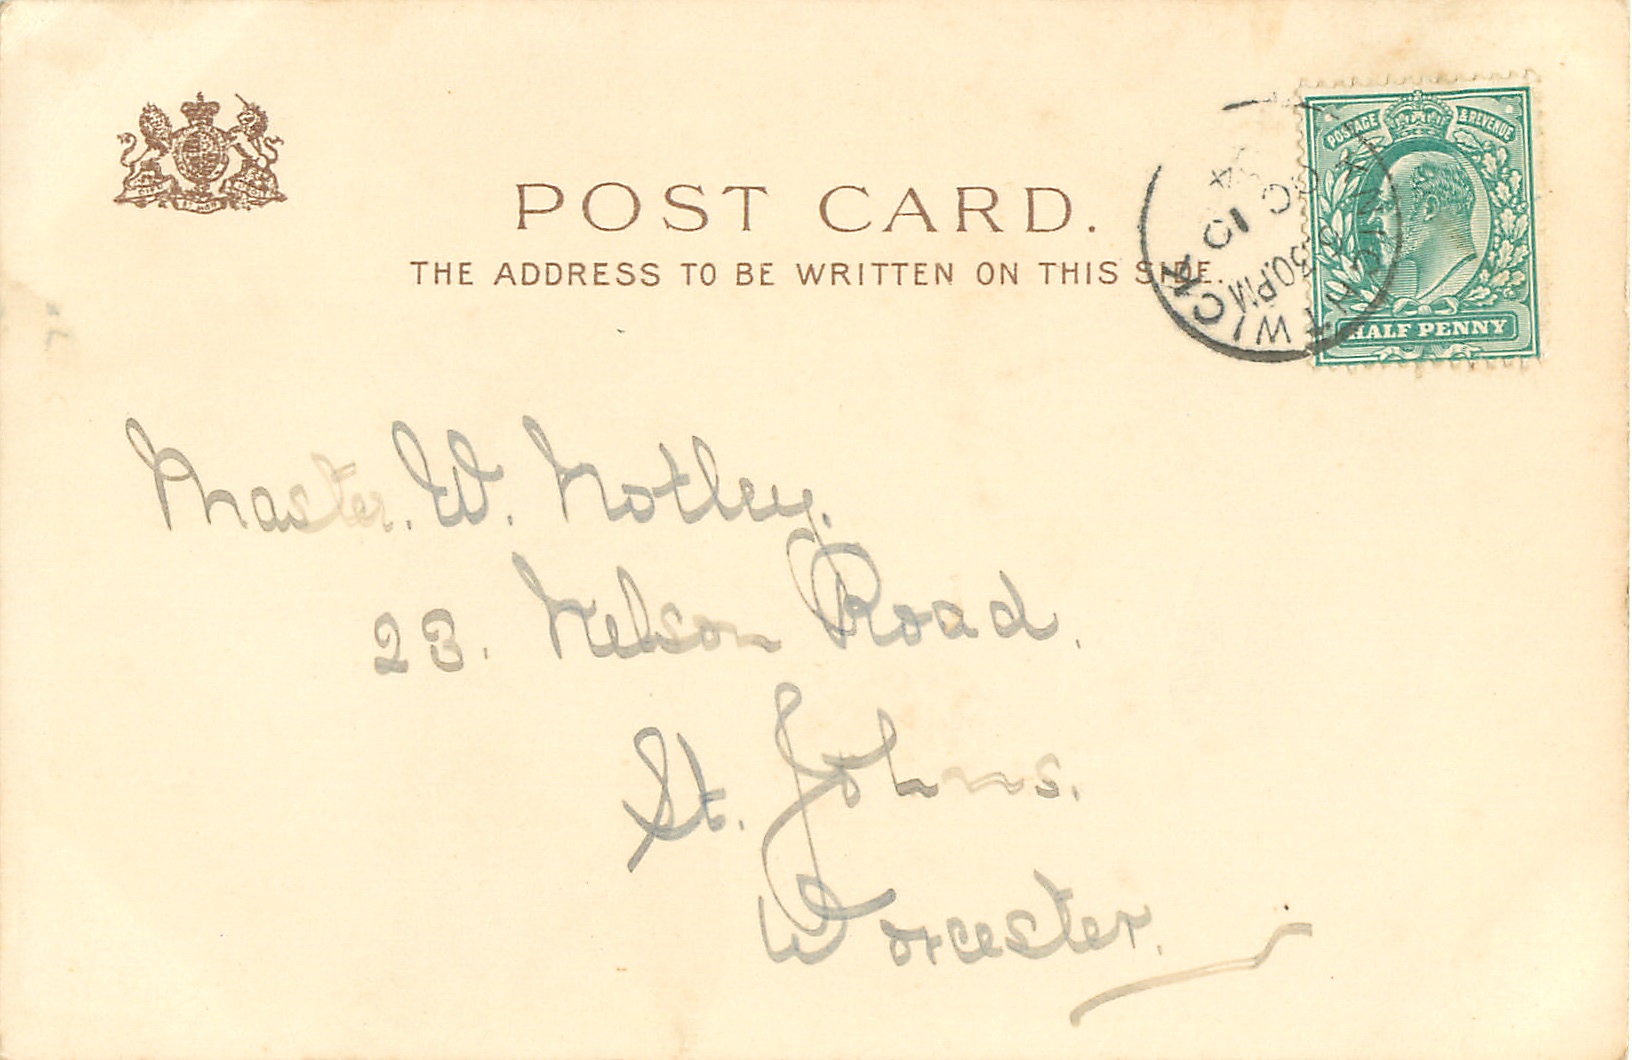 POST CARD.
THE ADDRESS TO BE WRITTEN ON THIS SIDE.
POSTAGE & REVENUE
HALF PENNY
30 PM
Master. W. Notley.
23. Nelson Road.
St. Johns.
Worcester.